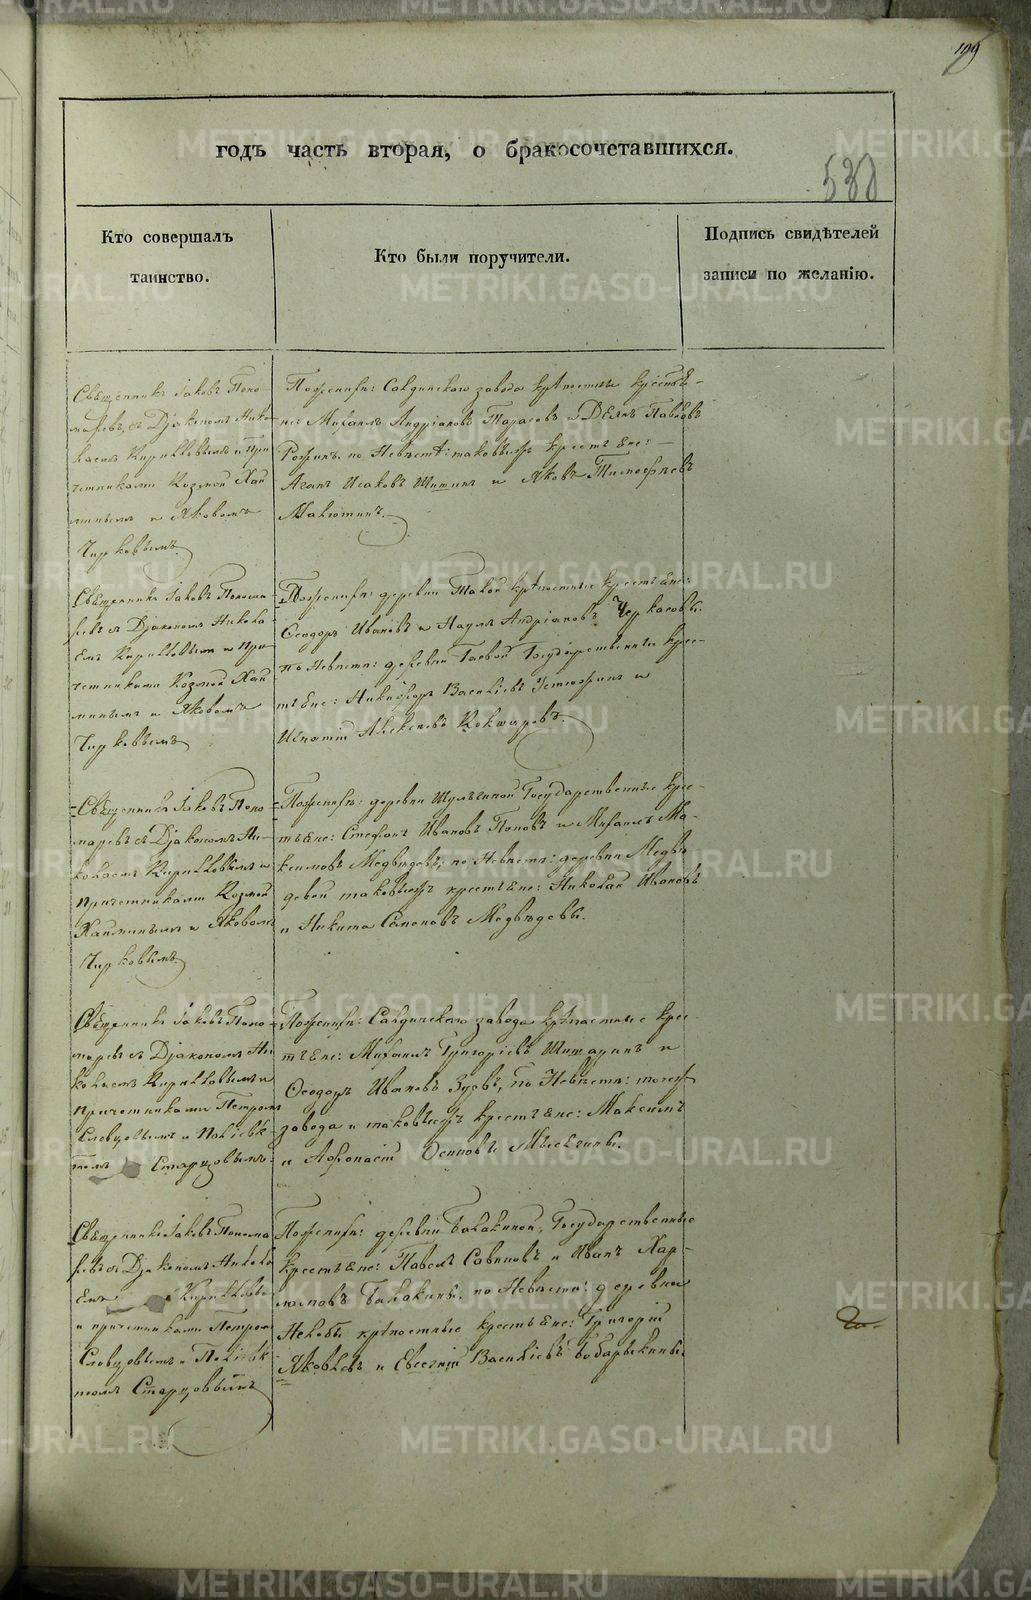 199
годъ часть вторая, о бракосочетавшихся.
538
Кто совершалъ
таинство.
Кто были поручители.
Подпись свидѣтелей
записи по желанію.
Священникъ Іаковъ Поно-
маревъ, съ Діакономъ Нико-
лаемъ Кирилловымъ и При-
четниками Козмой Хай
минымъ и Яковомъ
Чирковымъ
По женихѣ: Салдинскаго завода крѣпостные крестья-
не: Михаилъ Андріановъ Тарасовъ и Павловъ
по Невѣстѣ: таковыежъ крестьяне:
Исаковъ Шишинъ и Яковъ Тимофѣевъ
Священникъ Іаковъ Понома
ревъ съ Діакономъ Никола
емъ Кирилловымъ и При
четниками Козмой Хай
минымъ и Яковомъ
Чирковымъ
По женихѣ: деревни крѣпостные крестьяне:
Ѳеодоръ Ивановъ и Наумъ Андріановъ Черкасовы.
по Невѣстѣ: деревни Гаевой Государственные крес-
тьяне: Никифоръ Васильевъ Устюжинъ и
Игнатій Алексѣевъ Кокшаровъ.
Священникъ Іаковъ Поно
маревъ съ Діакономъ Ни-
колаемъ Кирилловымъ и
причетниками Козмой
Хайминымъ и Яковомъ
Чирковымъ
По женихѣ: деревни Шуминой Государственные крес-
тьяне: Стефанъ Ивановъ Поповъ и Михаилъ Ма-
ксимовъ Медвѣдевъ; по Невѣстѣ: деревни Медвѣ
девой таковыежъ крестьяне: Николай Ивановъ
и Никита Семеновъ Медвѣдевы.
Священникъ Іаковъ Поно
маревъ съ Діакономъ Ни
колаемъ Кирилловымъ и
причетниками Петромъ
Словцовымъ и Поліевк-
томъ Старцовымъ.
По женихѣ: Салдинскаго завода крѣпостные крес-
тьяне: Михаилъ Григорьевъ и
Ѳеодоръ Ивановъ Зуевъ, по Невѣстѣ: тогожъ
завода и таковыежъ крестьяне: Максимъ
и Аѳонасій Осиповы
Священникъ Іаковъ Понома
ревъ съ Діакономъ Никола
емъ Кирилловы
и причетниками Петромъ
Словцовымъ и Поліевк
томъ Старцовымъ
По женихѣ: деревни Балакиной, Государственные
крестьяне: Павелъ Савиновъ и Иванъ Хар-
ламовъ Балакины. по Невѣстѣ: деревни
крѣпостные крестьяне: Григорій
Яковлевъ и Евсегній Васильевъ Бобарыкины.